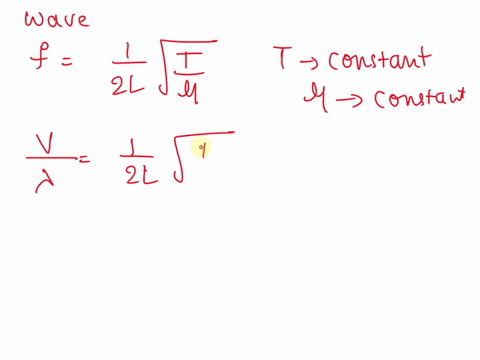 wave
f = 1/2L √T/μ T → constant
μ → constant
V/λ = 1/2L √